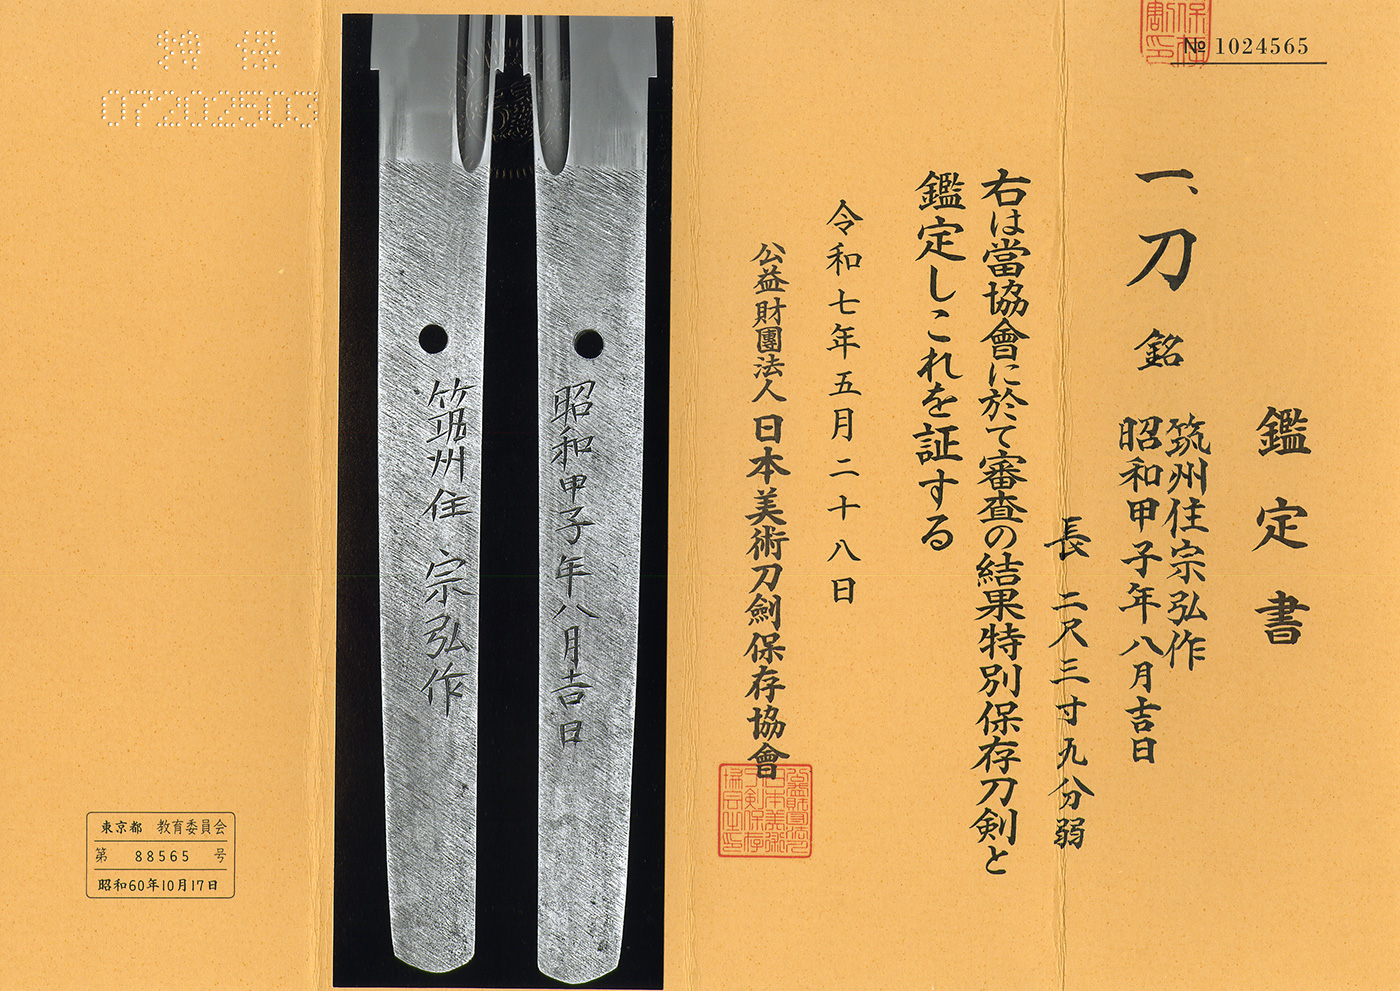 № 1024565
鑑定書
一、刀 銘 筑州住宗弘作
昭和甲子年八月吉日
長 二尺三寸九分弱
右は當協會に於て審査の結果特別保存刀剣と
鑑定しこれを証する
令和七年五月二十八日
公益財團法人 日本美術刀劍保存協會
昭和甲子年八月吉日
筑州住宗弘作
特保
07202503
東京都 教育委員会
第 88565 号
昭和60年10月17日